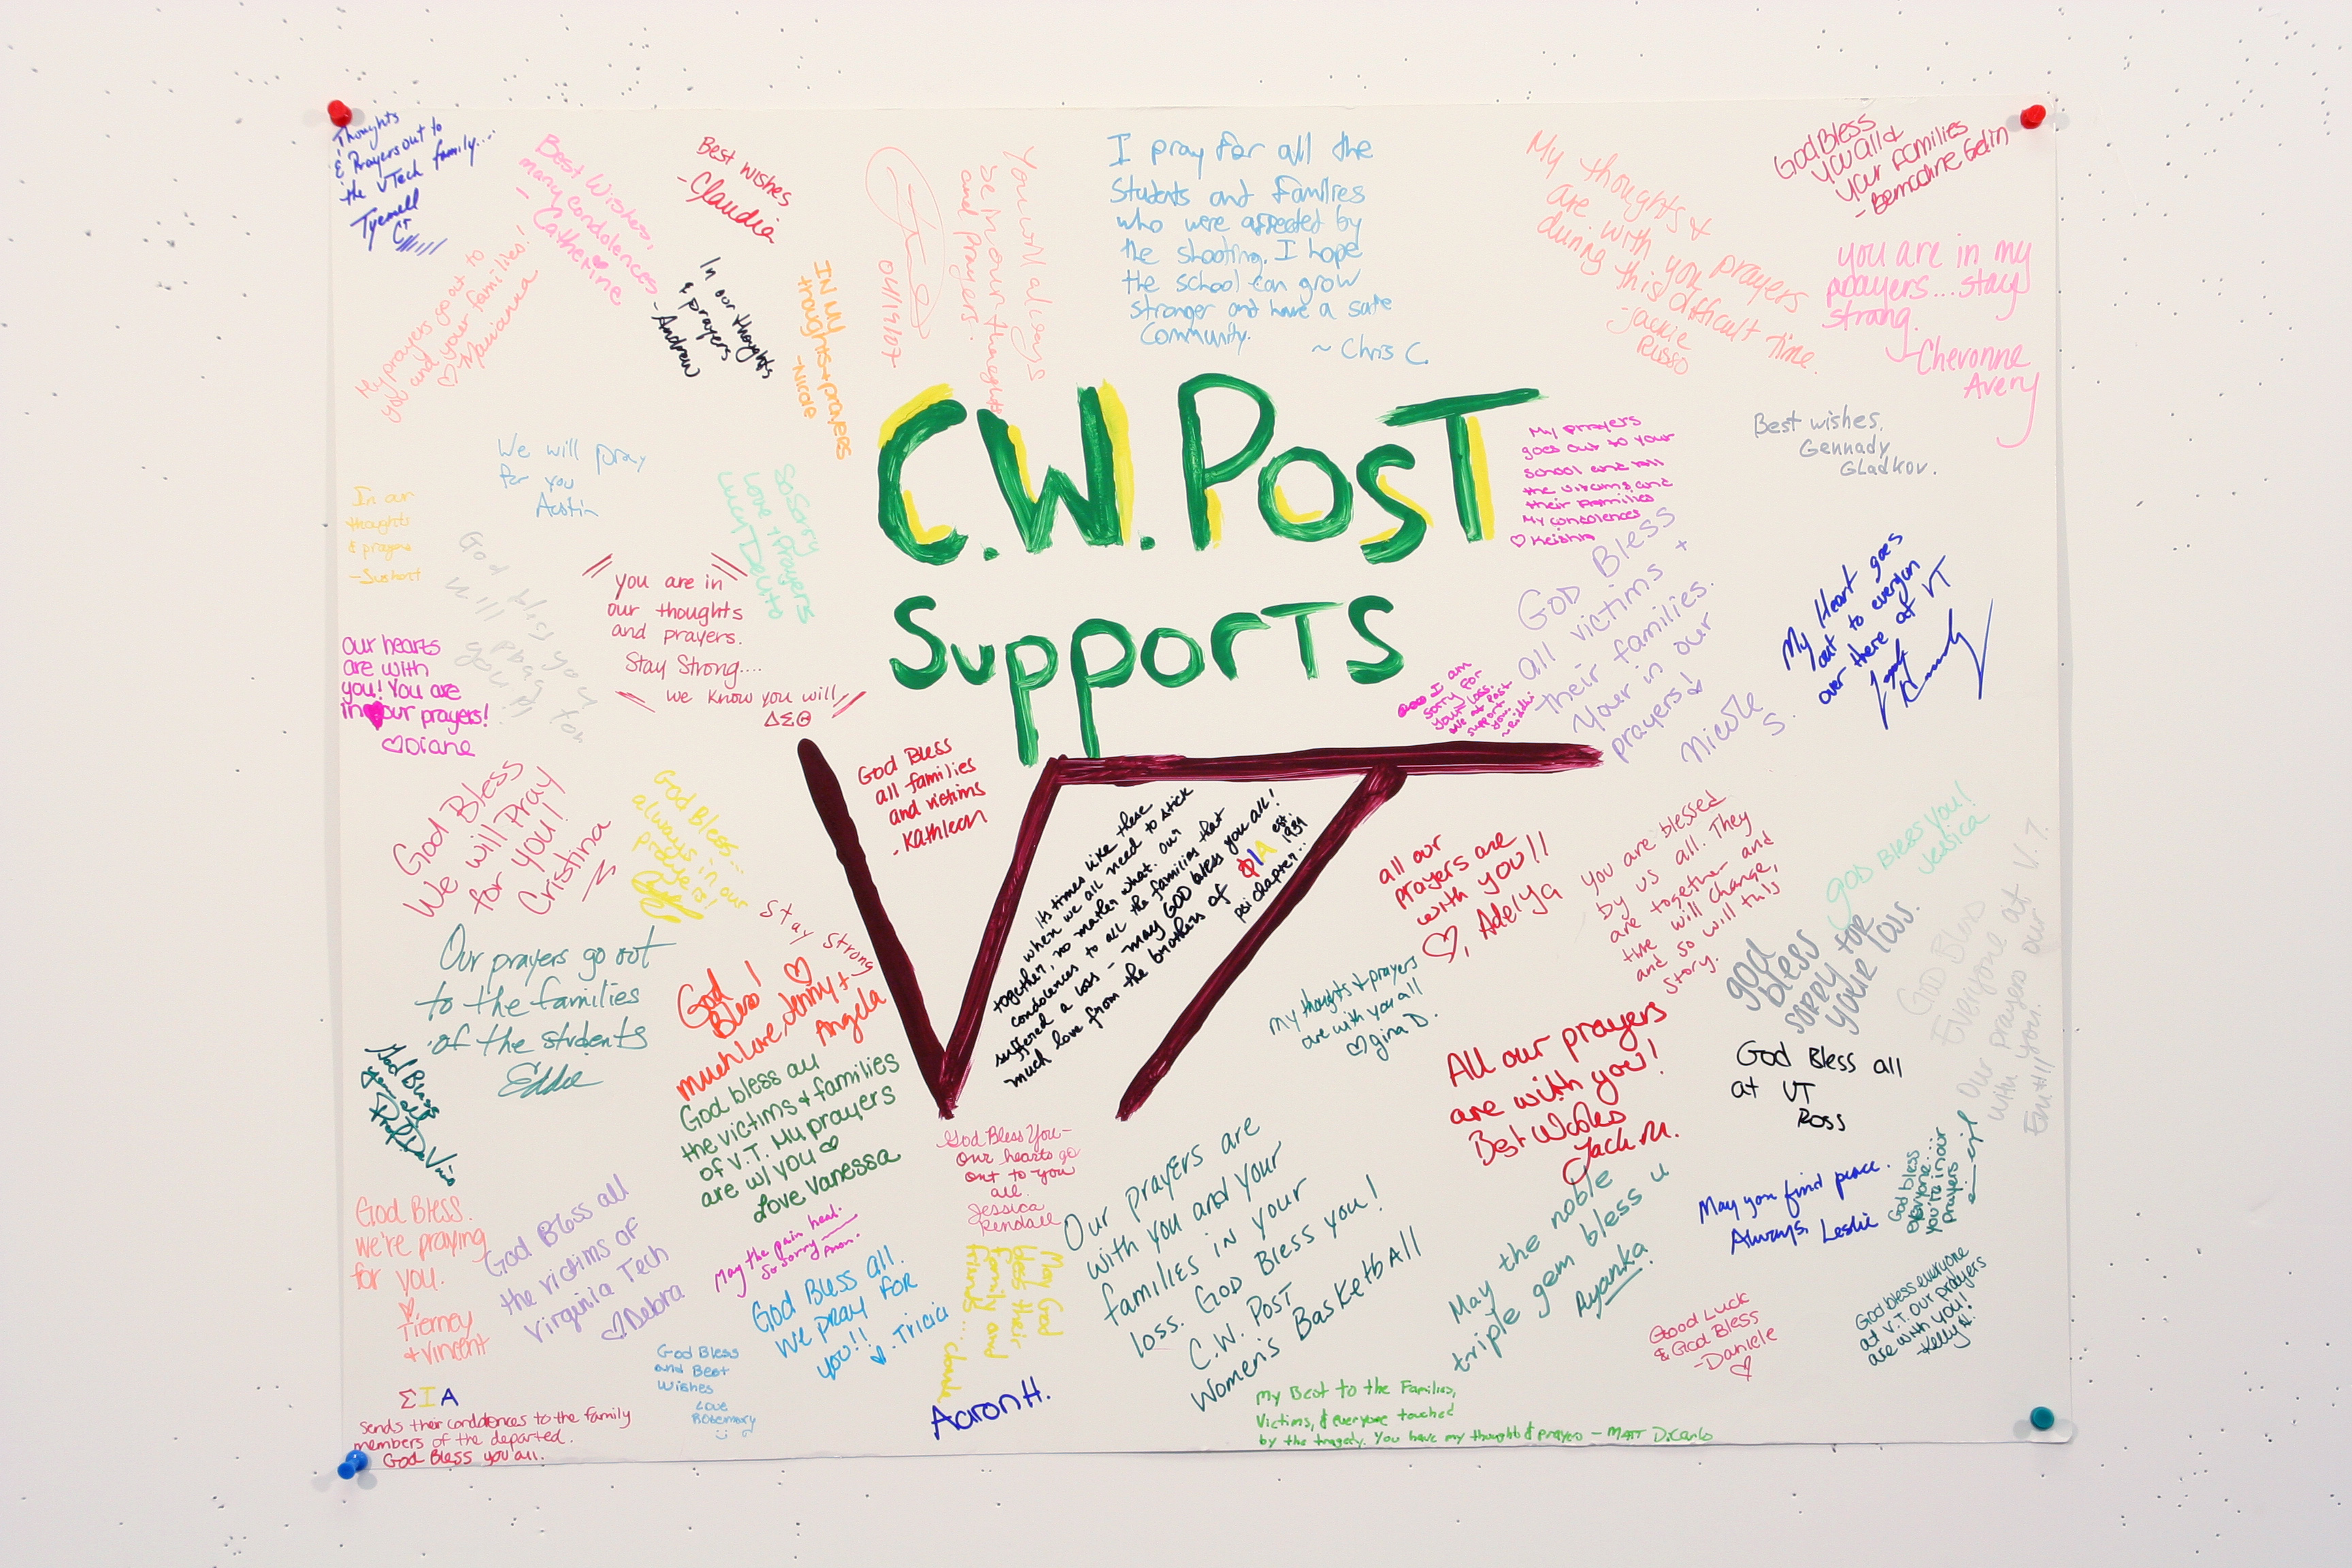 Thoughts
& Prayers out to
the VTech family...
Tyemell
Best Wishes,
many condolences
- Catherine
Best wishes
-Claudia
04/19/07
You will always
be in our thoughts
and prayers.
I pray for all the
Students and Families
who were affected by
the shooting. I hope
the school can grow
stronger and have a safe
Community.
~ Chris C.
My thoughts &
prayers
are with you
during this difficult time.
-Jackie
Russo
God Bless
you all &
your families
- Bernadine Gedin
you are in my
prayers...stay
strong.
-Chevonne
Avery
My prayers go out to
you and your families!
♡ Marianna
In our thoughts
& prayers
-Andrew
IN MY
thoughts + prayers
-Nicole
C.W. POST
SUPPORTS
VT
My prayers
goes out to your
school and all
the victims and
their families
My condolences
♡ Keisha
Best wishes,
Gennady
Gladkov.
We will pray
for you
Austin
In our
thoughts
& prayers
-Sushant
So Sorry
Love + Prayers
Lucy DeVito
God bless you
will pray for
you all
you are in
our thoughts
and prayers.
Stay Strong....
we know you will
ΔΣΘ
our hearts
are with
you! You are
in our prayers!
♡Diane
I am
sorry for
your loss.
We at Post
support
you.
GOD Bless
all victims +
their families.
Your in our
prayers!
Nicole S.
My Heart goes
out to everyon
over there at VT
God Bless
all families
and victims
- Kathleen
God Bless
We will Pray
for you!
Cristina
God Bless...
always in our
prayers!
its times like these
when we all need to stick
together, no matter what. our
condolences to all the families that
suffered a loss - may GOD bless you all!
much love from the brothers of ΦΙΑ est. 1931
psi chapter..
all our
prayers are
with you!!
♡, Adelya
you are blessed
by us all. They
are together and
time will change,
and so will this
story.
GOD Bless you!
Jessica
god
bless
sorry for
your loss.
GOD Bless
Everyone at V.T.
Our prayers our
with you.
Our prayers go out
to the families
of the students
Eddie
Stay strong
God
Bless! ♡
much Love, Jenny +
Angela
my thoughts & prayers
are with you all
♡ gina D.
All our prayers
are with you!
Best Wishes
Jack M.
God Bless all
at VT
Ross
God Bless
you all
God bless all
the victims & families
of V.T. My prayers
are w/ you ♡
Love Vanessa
God Bless You-
Our hearts go
out to you
all.
Jessica
Rendall
Our prayers are
with you and your
families in your
loss. GOD Bless you!
C.W. POST
Women's Basketball
May the noble
triple gem bless u
Ayanka
May you find peace.
Always, Leslie
God bless
everyone....
you're in our
prayers
God Bless.
we're praying
for you.
♡
Tierney
+ Vincent
God Bless all
the victims of
Virginia Tech
♡Debra
May the pain heal.
So sorry
Anon.
God Bless all.
We pray for
you!!
Tricia
May God
bless their
family and
friends...
God Bless
and Best
Wishes
Love
Rosemary
Aaron H.
Good Luck
& God Bless
-Daniele
♡
God bless everyone
at V.T. Our prayers
are with you!
Kelly
ΣΙΑ
sends their condolences to the family
members of the departed.
God Bless you all.
My Best to the Families,
Victims, & everyone touched
by the tragedy. You have my thoughts & prayers - MATT DiCarlo